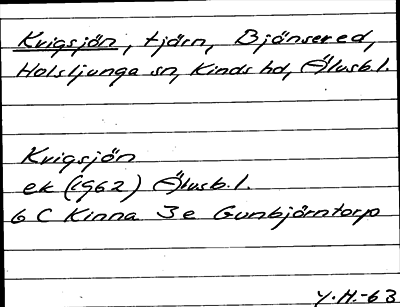 Krigsjön, tjärn, Björsered,
Holsljunga sn, Kinds hd, Älvsb.l.
Krigsjön
ek (1962) Älvsb.l.
6 C Kinna 3e Gunbjörntorp
Y.H.-63